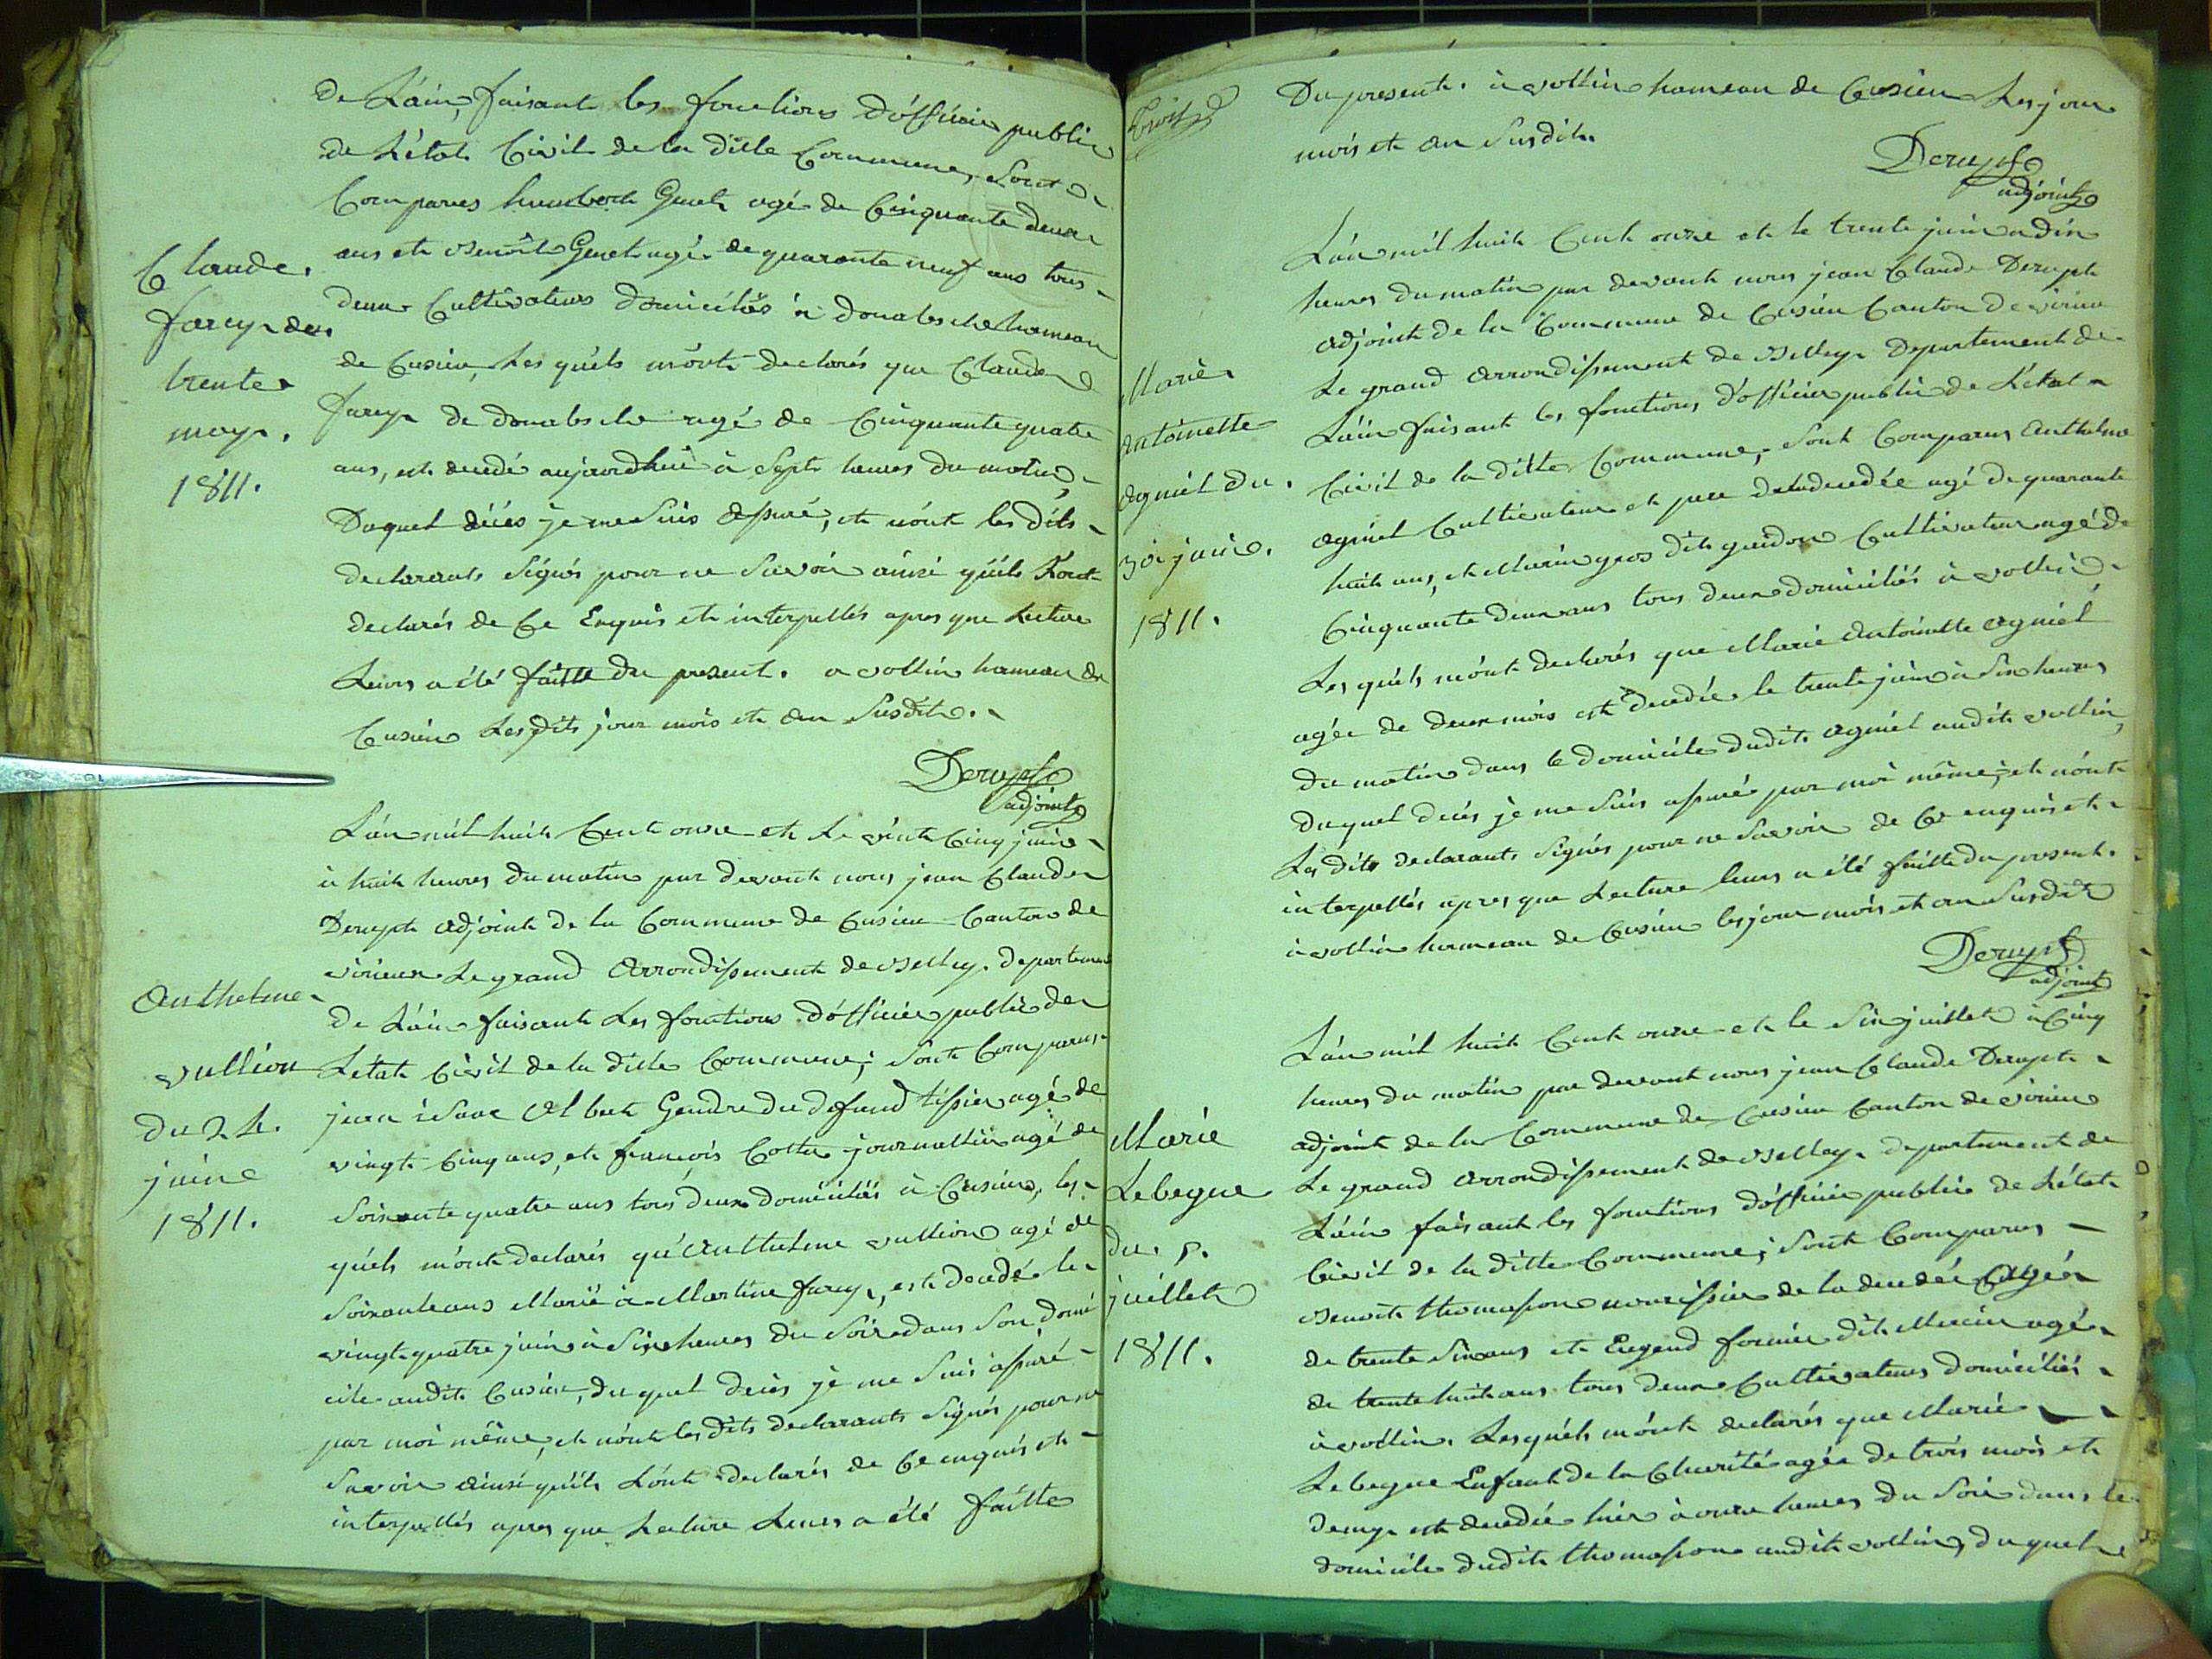 de L'ain, faisant les fonctions d'officier public
de L'état Civil de la ditte Commune, Sont
Comparus humbert Genet agé de Cinquante deux
ans et Benoit Genet agé de quarante neuf ans tous
deux Cultivateurs domiciliés à hameau
de Cusieu, Les quéls m'ont declarés que Claude
farcy de agé de Cinquante quatre
ans, est decedé aujourdhui à Sept heures du matin,
Duquel décés je me Suis assuré, et n'ont les dits
declarants Signés pour ne Savoir ainsi qu'ils L'ont
declarés de Ce Enquis et interpellés apres que Lecture
Leurs a été faitte du present. a vollin hameau de
Cusieu Lesdits jour mois et an Susdits.
Derupt
adjoint
Claude
farcy du
trente
may.
1811.
L'an mil huit Cent onze et Le vint Cinq juin
à huit heures du matin par devant nous jean Claude
Derupt adjoint de la Commune de Cusieu Canton de
virieux Le grand Arrondissement de Belley. departement
de L'ain faisant Les fonctions d'officier public de
L'état Civil de la ditte Commune; Sont Comparus
jean isaac Albert Gendre du defund tissier agé de
vingt Cinq ans, et françois Cottin journallier agé de
Soixante quatre ans tous deux domiciliés à Cusieu, les
quéls m'ont declarés qu'Anthelme vullion agé de
Soixante ans Marié à Martine farcy, est decedé le
vingt quatre juin à Six heures du Soir dans Son domi
cile audit Cusieu, du quel décés je me Suis assuré
par moi même, et n'ont les dits declarants Signés pour ne
Savoir ainsi qu'ils L'ont declarés de Ce enquis et
interpellés apres que Lecture Leurs a été faitte
Anthelme
vullion
du 24.
juin
1811.
Du present. à vollin hameau de Cusieu Les jour
mois et an Susdits.
Derupt
adjoint
L'an mil huit Cent onze et le trente juin a dix
heures du matin par devant nous jean Claude Derupt
adjoint de la Commune de Cusieu Canton de virieu
Le grand Arrondissement de Belley Departement de
L'ain faisant les fonctions d'officier public de L'état
Civil de la ditte Commune, Sont Comparus Anthelme
agniel Cultivateur et pere de la decedée agé de quarante
huit ans, et Marin gros dit guidon Cultivateur agé de
Cinquante deux ans tous deux domiciliés à vollin
Les quéls m'ont declarés que Marie Antoinette agniel
agée de deux mois est decedée le trente juin à Six heures
du matin dans le domicile dudit agniel audit vollin,
duquel décés je me Suis assuré par moi même; et n'ont
Les dits declarants Signés pour ne Savoir de Ce enquis et
interpellés apres que Lecture leurs a été faitte du present.
à vollin hameau de Cusieu les jour mois et an Susdit
Derupt
adjoint
Marie
Antoinette
agniel du
30 juin.
1811.
L'an mil huit Cent onze et le Six juillet à Cinq
heures du matin par devant nous jean Claude Derupt
adjoint de la Commune de Cusieu Canton de virieu
Le grand Arrondissement de Belley. departement de
L'ain faisant les fonctions d'officier public de L'état
Civil de la ditte Commune; Sont Comparus
Benoit thomasson nourissier de la decedée agé
de trente Six ans et Eugend fornier dit Mercier agé
de trente huit ans tous deux Cultivateurs domiciliés
à vollin. Lesquéls m'ont declarés que Marie
Lebegue Enfant de la Charité agée de trois mois et
demy est decedée hier à onze heures du Soir dans le
domicile dudit thomasson audit vollin, duquel
Marie
Lebegue
du 5.
juillet
1811.